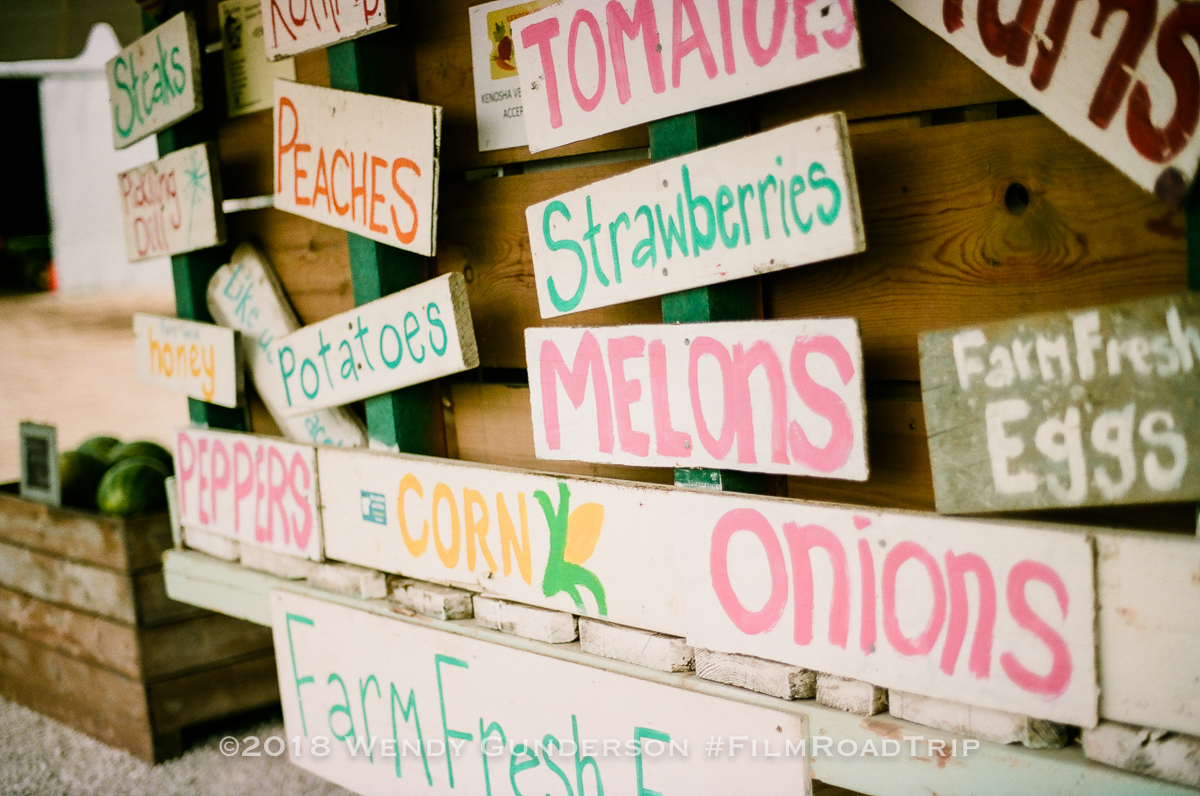 Steaks
Pickling
Dill
honey
PEACHES
Like us
Potatoes
KENOSHA
ACCEP
TOMATOES
Strawberries
MELONS
Farm Fresh
Eggs
PEPPERS
CORN
Onions
Farm Fresh
©2018 Wendy Gunderson #FilmRoadTrip